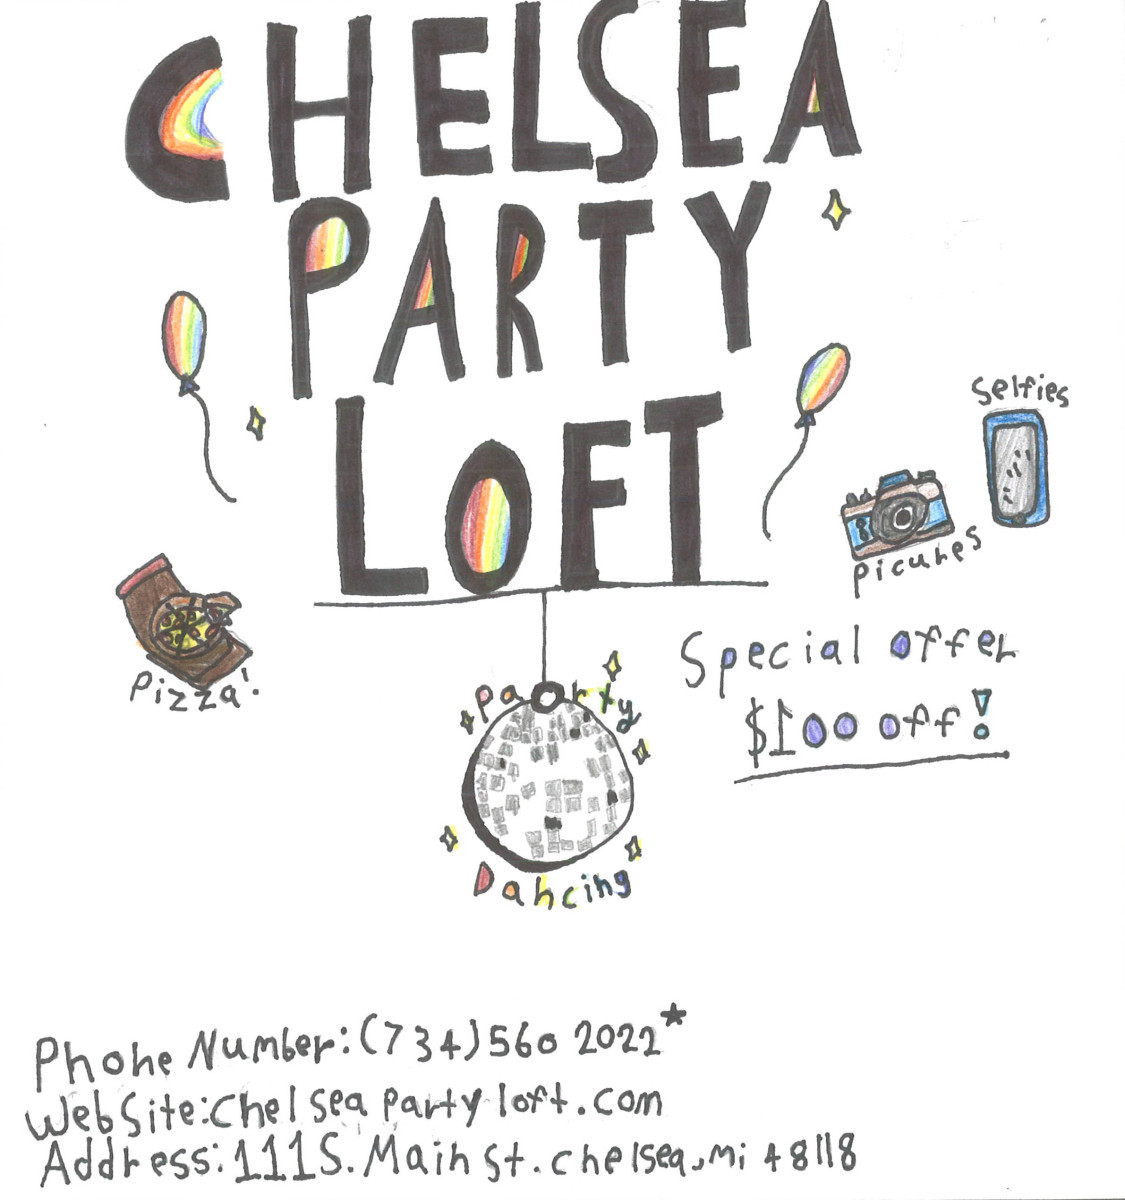 CHELSEA
PARTY
LOFT
Selfies
picures
Pizza!
Special offer
$100 off!
Party
Dancing
Phone Number: (734) 560 2022*
WebSite: Chelsea party loft.com
Address: 111 S. Main st. chelsea, mi 48118